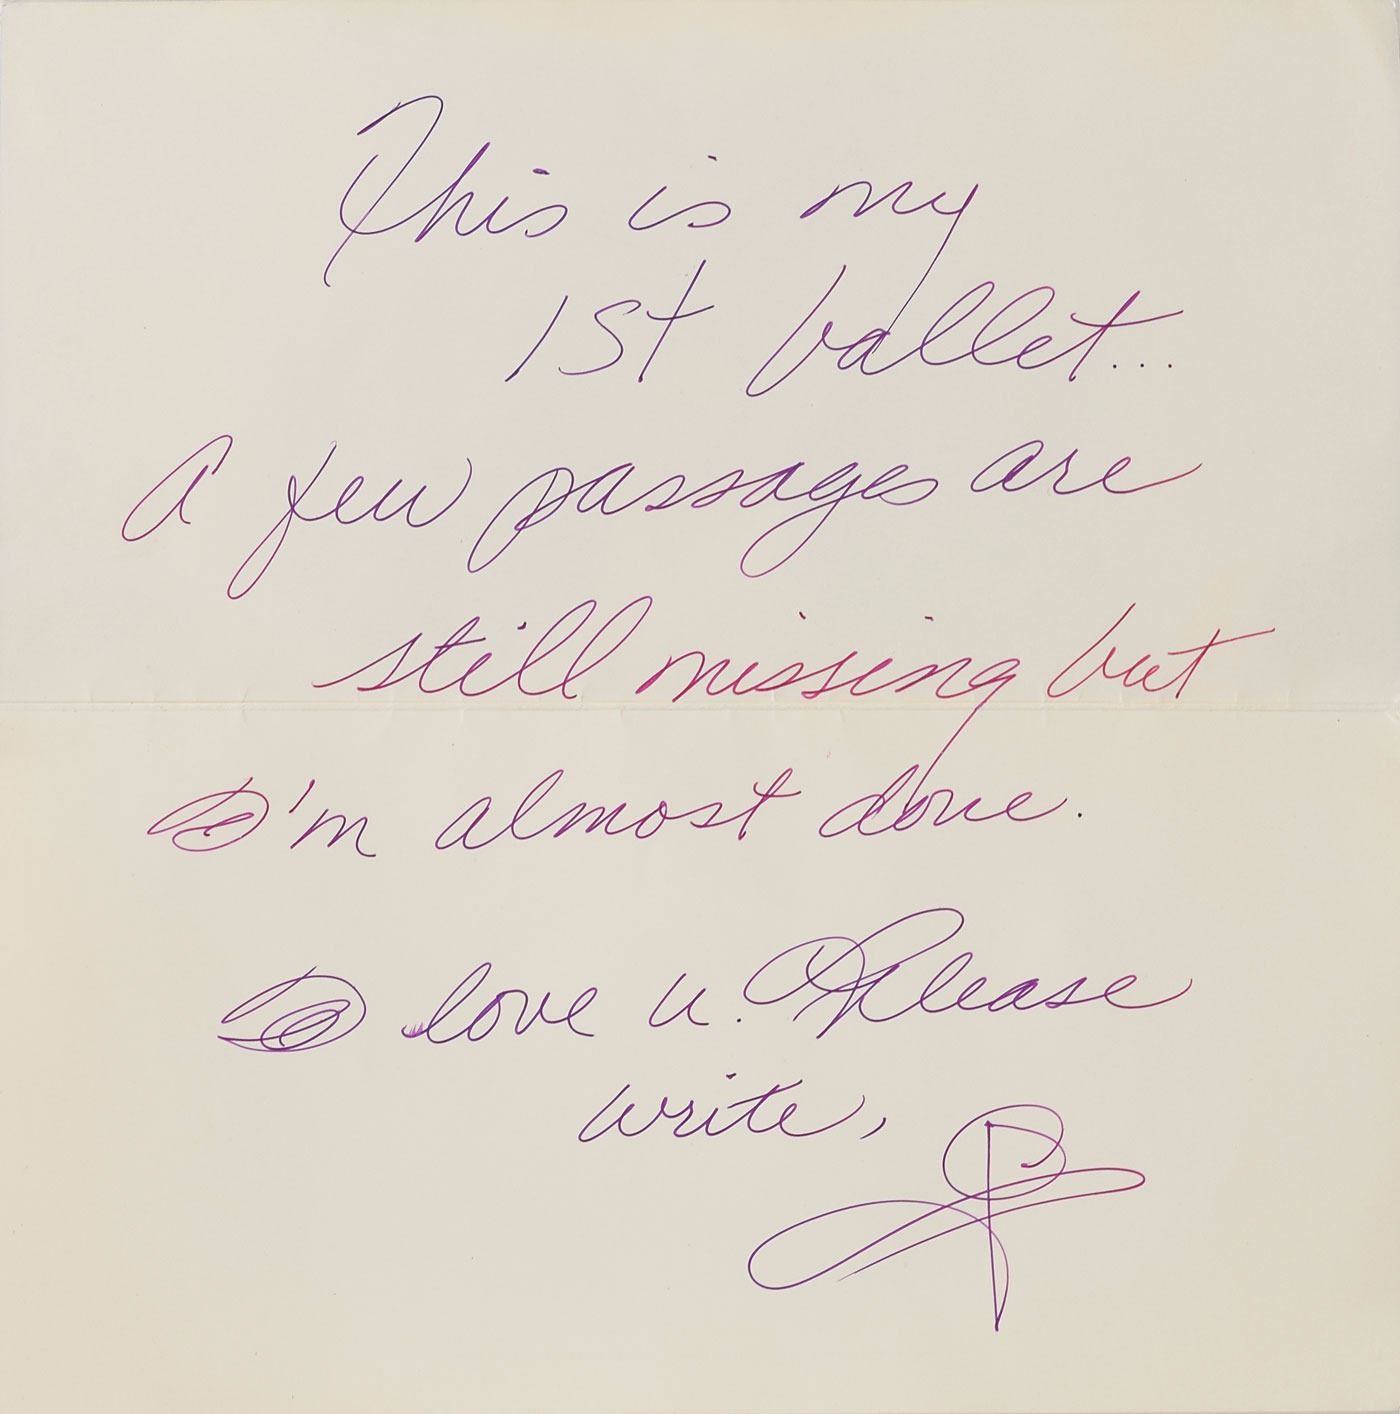 This is my
1st ballet...
A few passages are
still missing but
I'm almost done.
I love u. Please
write,